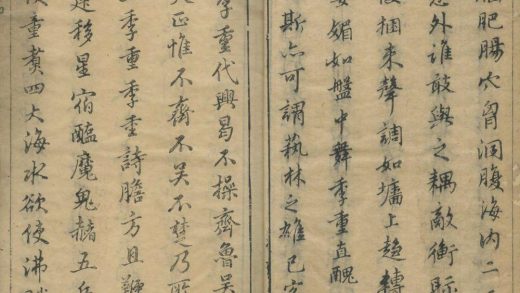 腦肥腸穴胷洞腹海內二
意外誰敢與之耦敵衡
捆束聲調如墻上趋轉
媚如盤中舞季重直醜
斯亦可謂蓺林之雄已
季重代興曷不操齊魯吴
正惟不齊不吴不楚乃
季重季重詩膽方且
移星宿醢魔鬼赭五
重煑四大海水欲使沸